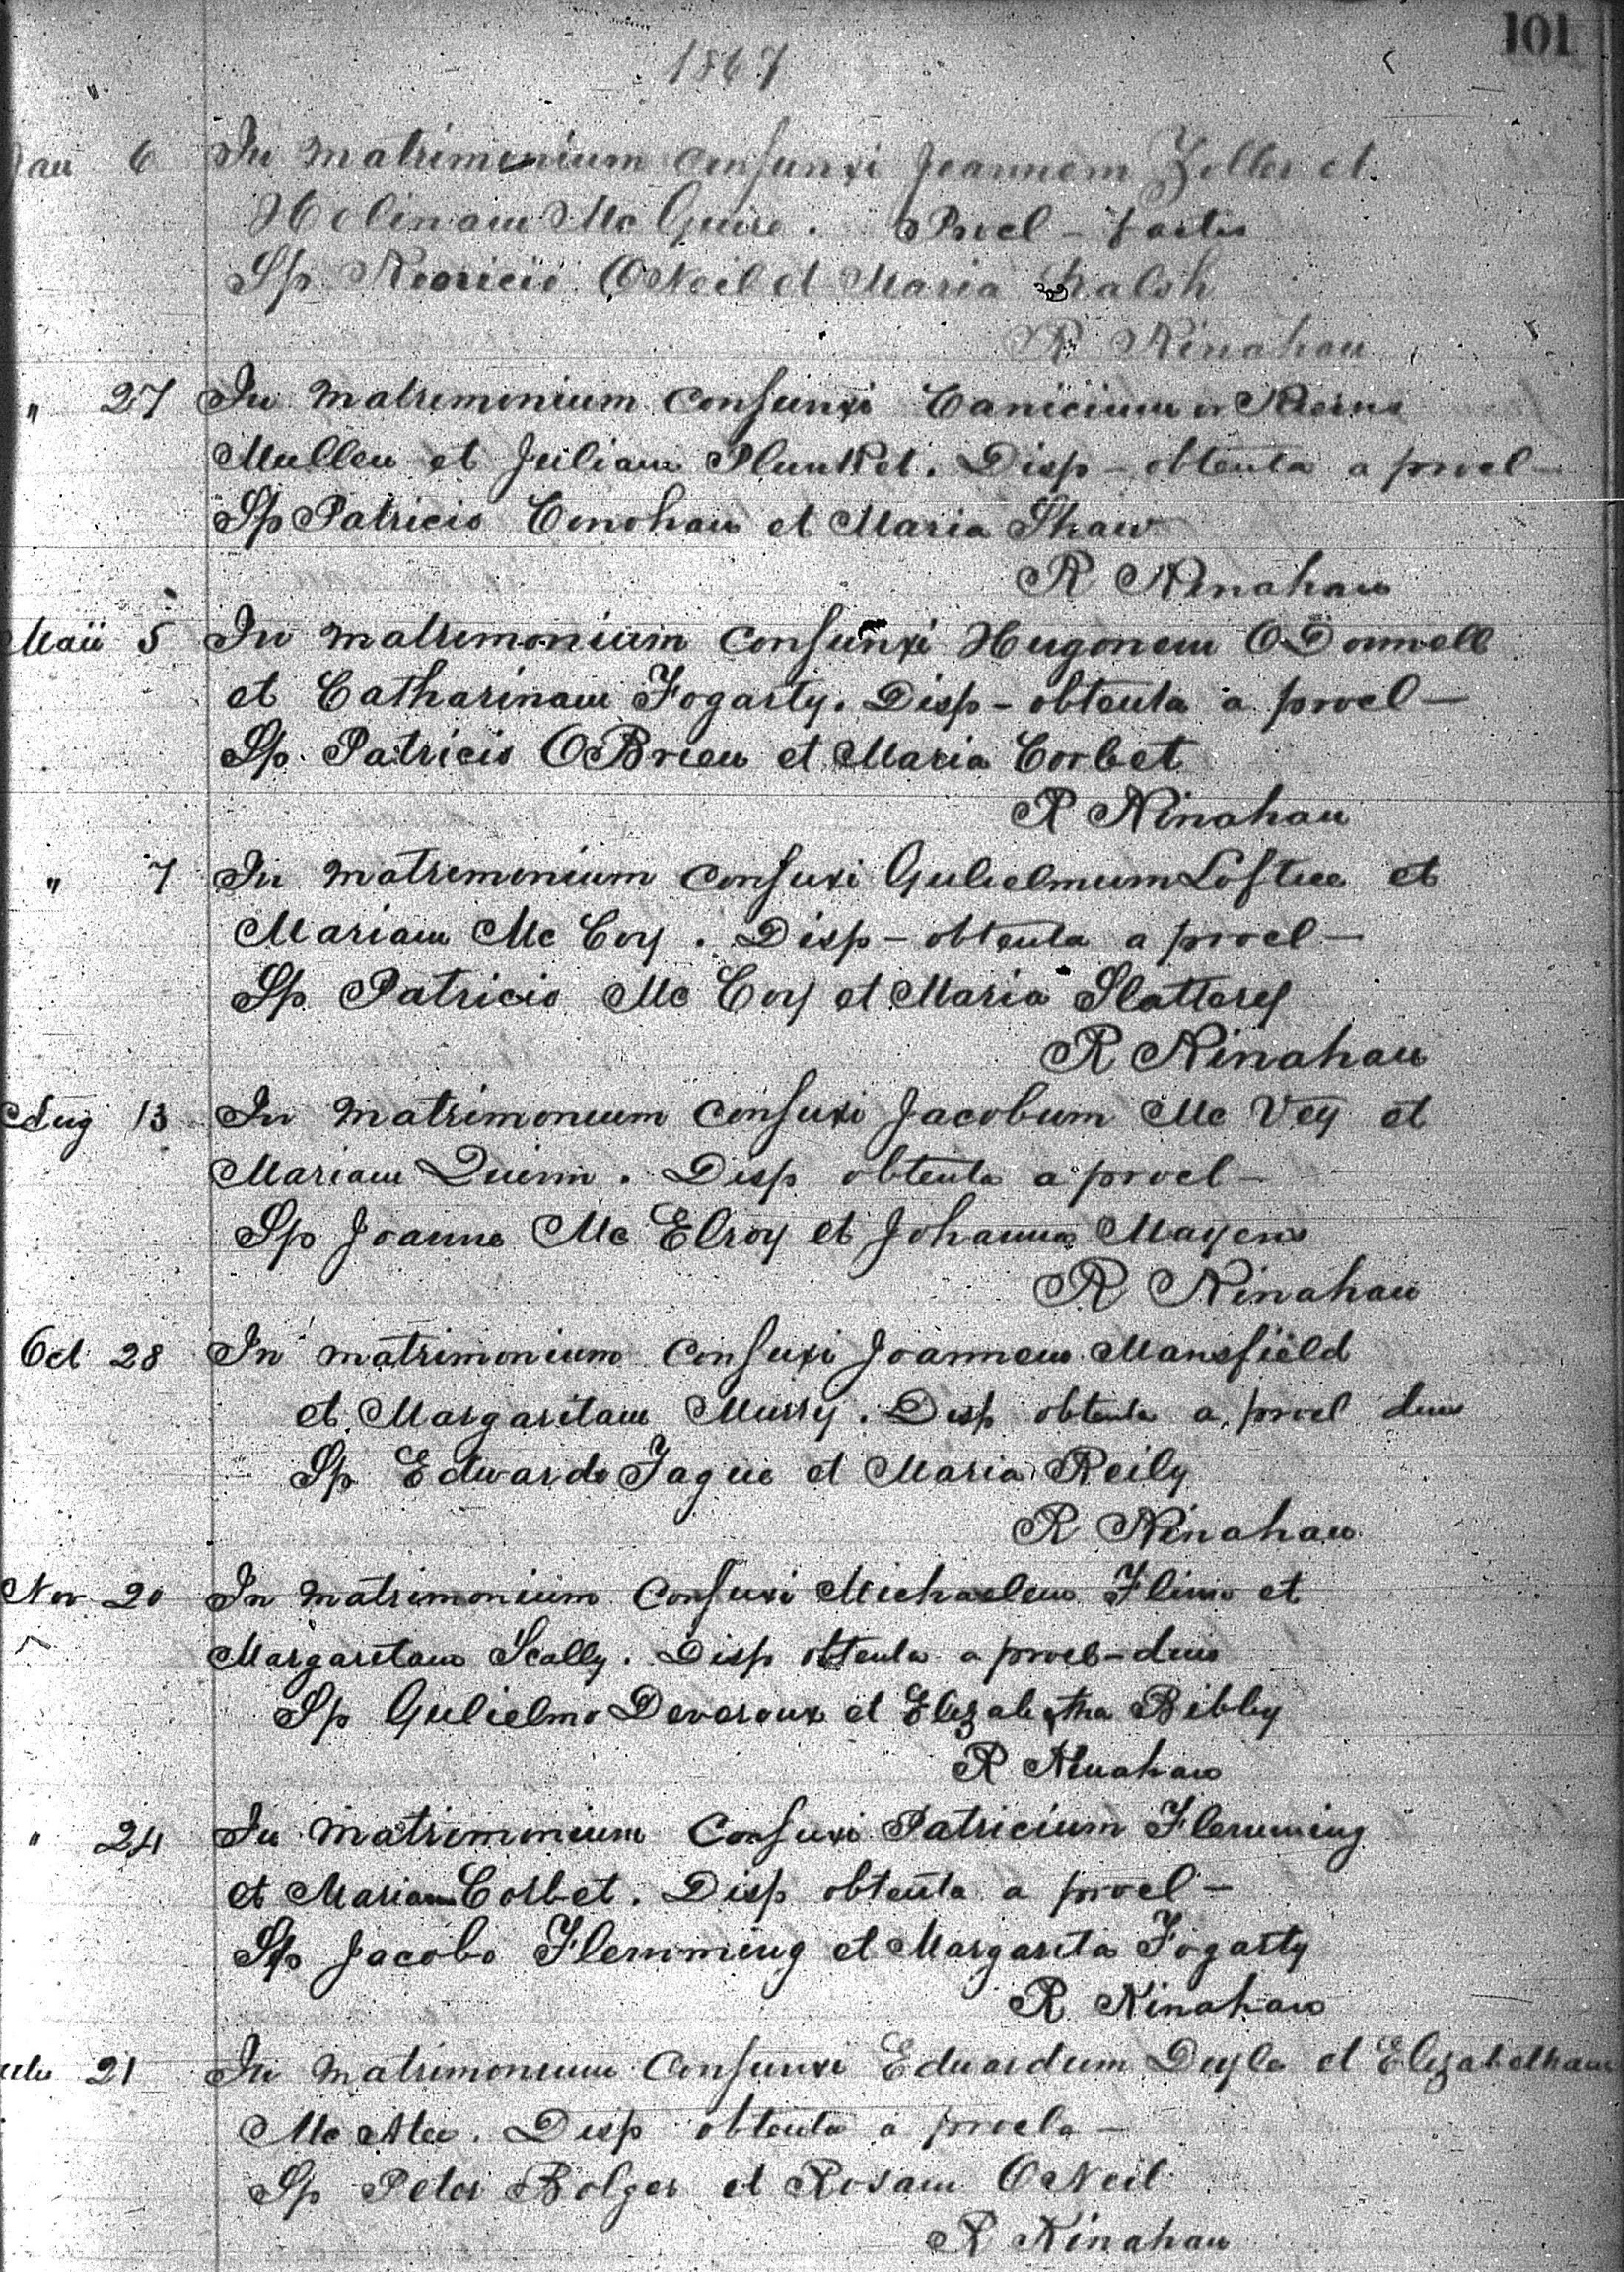 101
1867
Jan 6 In matrimonium conjunxi Joannem Zoller et
Helinam McGuire. Procl - factis
Sp. O Neil et Maria Walsh
R Kinahan
" 27 In matrimonium conjunxi Canicium or Kierns
Mullen et Juliam Plunket. Disp - obtenta a procl -
Sp Patricio Conohan et Maria Shaw
R Kinahan
Maii 5 In matrimonium conjunxi Hugonem O Donnell
et Catharinam Fogarty. Disp - obtenta a procl -
Sp. Patricio O Brien et Maria Corbet
R Kinahan
" 7 In matrimonium conjuxi Gulielmum Loftee et
Mariam Mc Coy. Disp - obtenta a procl -
Sp. Patricio Mc Coy et Maria Slattery
R Kinahan
Aug 13 In matrimonium conjuxi Jacobum Mc Vey et
Mariam Quinn. Disp obtenta a procl -
Sp Joanne Mc Elroy et Johanna Mayens
R Kinahan
Oct 28 In matrimonium conjuxi Joannem Mansfield
et Margaritam Murry. Disp obtenta a procl
Sp Edwardo Tague et Maria Reily
R Kinahan
Nov 20 In matrimonium conjuxi Michaelem Flinn et
Margaritam Scally. Disp obtenta a procl -
Sp Gulielmo Deveroux et Elizabetha Bibby
R Kinahan
" 24 In matrimonium conjuxi Patricium Flemming
et Mariam Corbet. Disp obtenta a procl -
Sp Jacobo Flemming et Margarita Fogarty
R. Kinahan
21 In matrimonium conjunxi Eduardum Doyle et Elizabetham
Mc Atee. Disp obtenta a procla -
Sp Peter Bolger et Rosam O Neil
R Kinahan